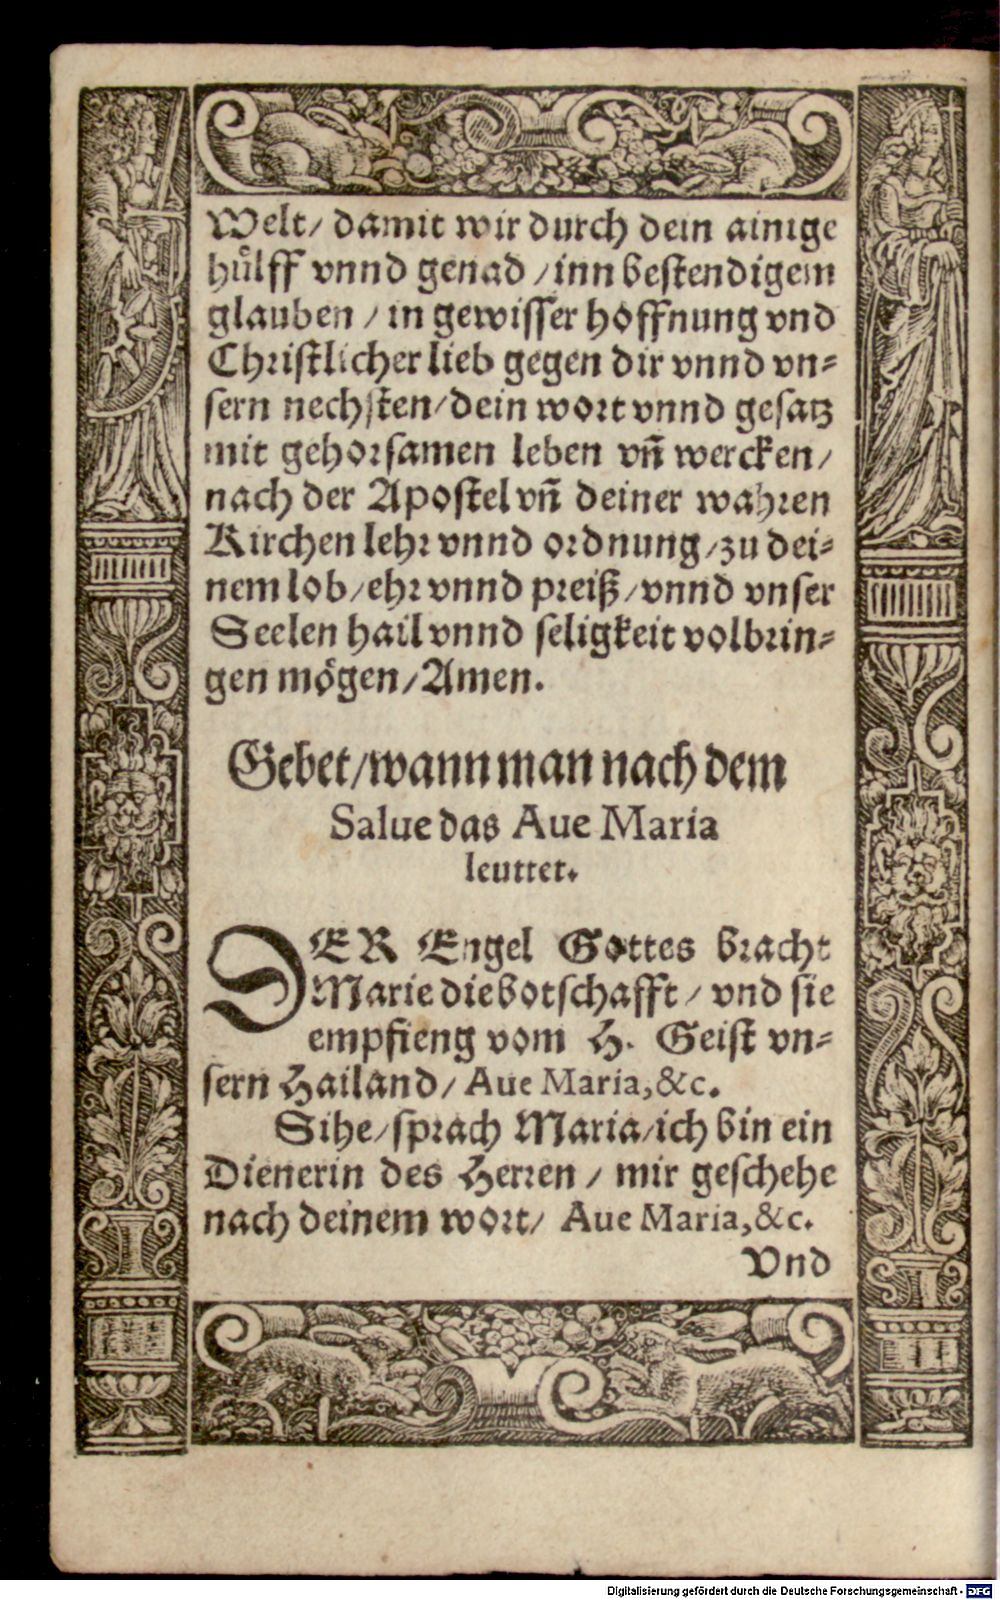 Welt/ damit wir durch dein ainige
hülff vnnd genad /inn bestendigem
glauben / in gewisser hoffnung vnd
Christlicher lieb gegen dir vnnd vn⸗
sern nechsten/dein wort vnnd gesatz
mit gehorsamen leben vñ wercken/
nach der Apostel vñ deiner wahren
Kirchen lehr vnnd ordnung/zu dei⸗
nem lob/ehr vnnd preiß/vnnd vnser
Seelen hail vnnd seligkeit volbrin⸗
gen mögen/Amen.
Gebet/wann man nach dem
Salue das Aue Maria
leuttet.
DER Engel Gottes bracht
Marie die botschafft/ vnd sie
empfieng vom H. Geist vn⸗
sern Hailand/ Aue Maria,&c.
Sihe/sprach Maria/ich bin ein
Dienerin des Herren / mir geschehe
nach deinem wort/ Aue Maria,&c.
Vnd
Digitalisierung gefördert durch die Deutsche Forschungsgemeinschaft - DFG